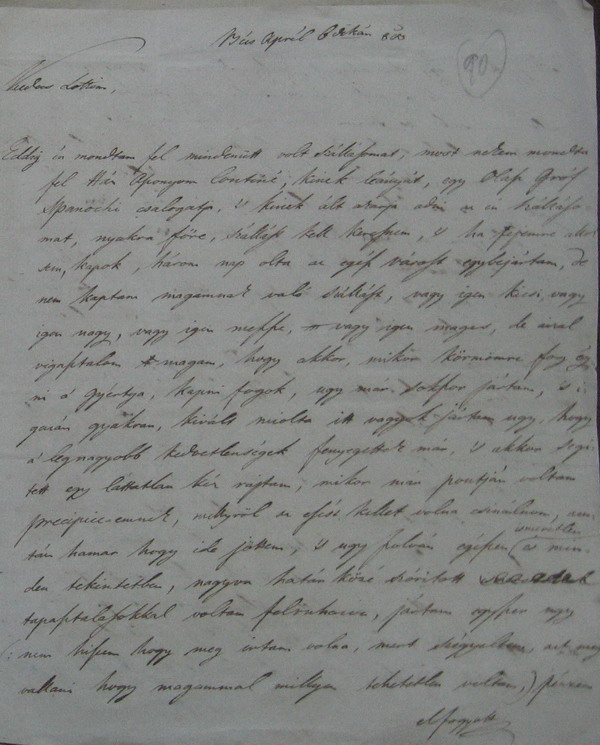 Bécs April 6dikán
90.
Kedves Lottim,
Eddig én mondtam fel mindenütt volt szállásomat, most nekem mondta
fel Hár Aponyom, kinek leányját, egy Olasz Gróf
Spanochi csalogatja, is kinek által adni az én szállásomat,
mat, nyakra főre, szállást kell keressem, is ha
kapok, három nap olta az egész várost egybejártam, de
nem kaptam magamnak való szállást, vagy igen kicsi, vagy
igen nagy, vagy igen messze, vagy igen magas, de avval
vigasztalom magam, hogy akkor, mikor körmömre fog ég
ni a gyértya, kapni fogok, ugy már sokszor jártam, is i
gazán gyakran, kivált miolta itt vagyok jártam ugy, hogy
a legnagyobb kedvetlenségek fenyegettek már, is akkor segi
tett egy láttatlan kéz rajtam, mikor már pontján voltam
precipice-emnek, mellyről az esést kellet volna csinálnom,
tán hamar hogy ide jöttem, is ugy szolván egészen
ismeretlen
is min
den tekintetben, nagyon határ közé szoritott
tapasztalásokkal voltam felruházva, jártam egyszer ugy
(: nem hiszem hogy meg irtam volna, mert szégyeltem, azt meg
vallani hogy magammal millyen tehetetlen voltam,) pénzem
elfogyott